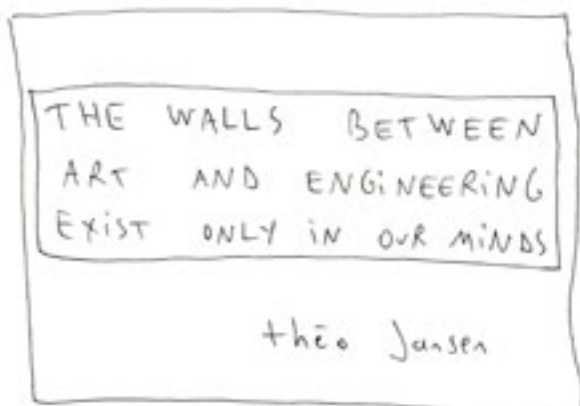 THE WALLS BETWEEN
ART AND ENGINEERING
EXIST ONLY IN OUR MINDS
théo Jansen